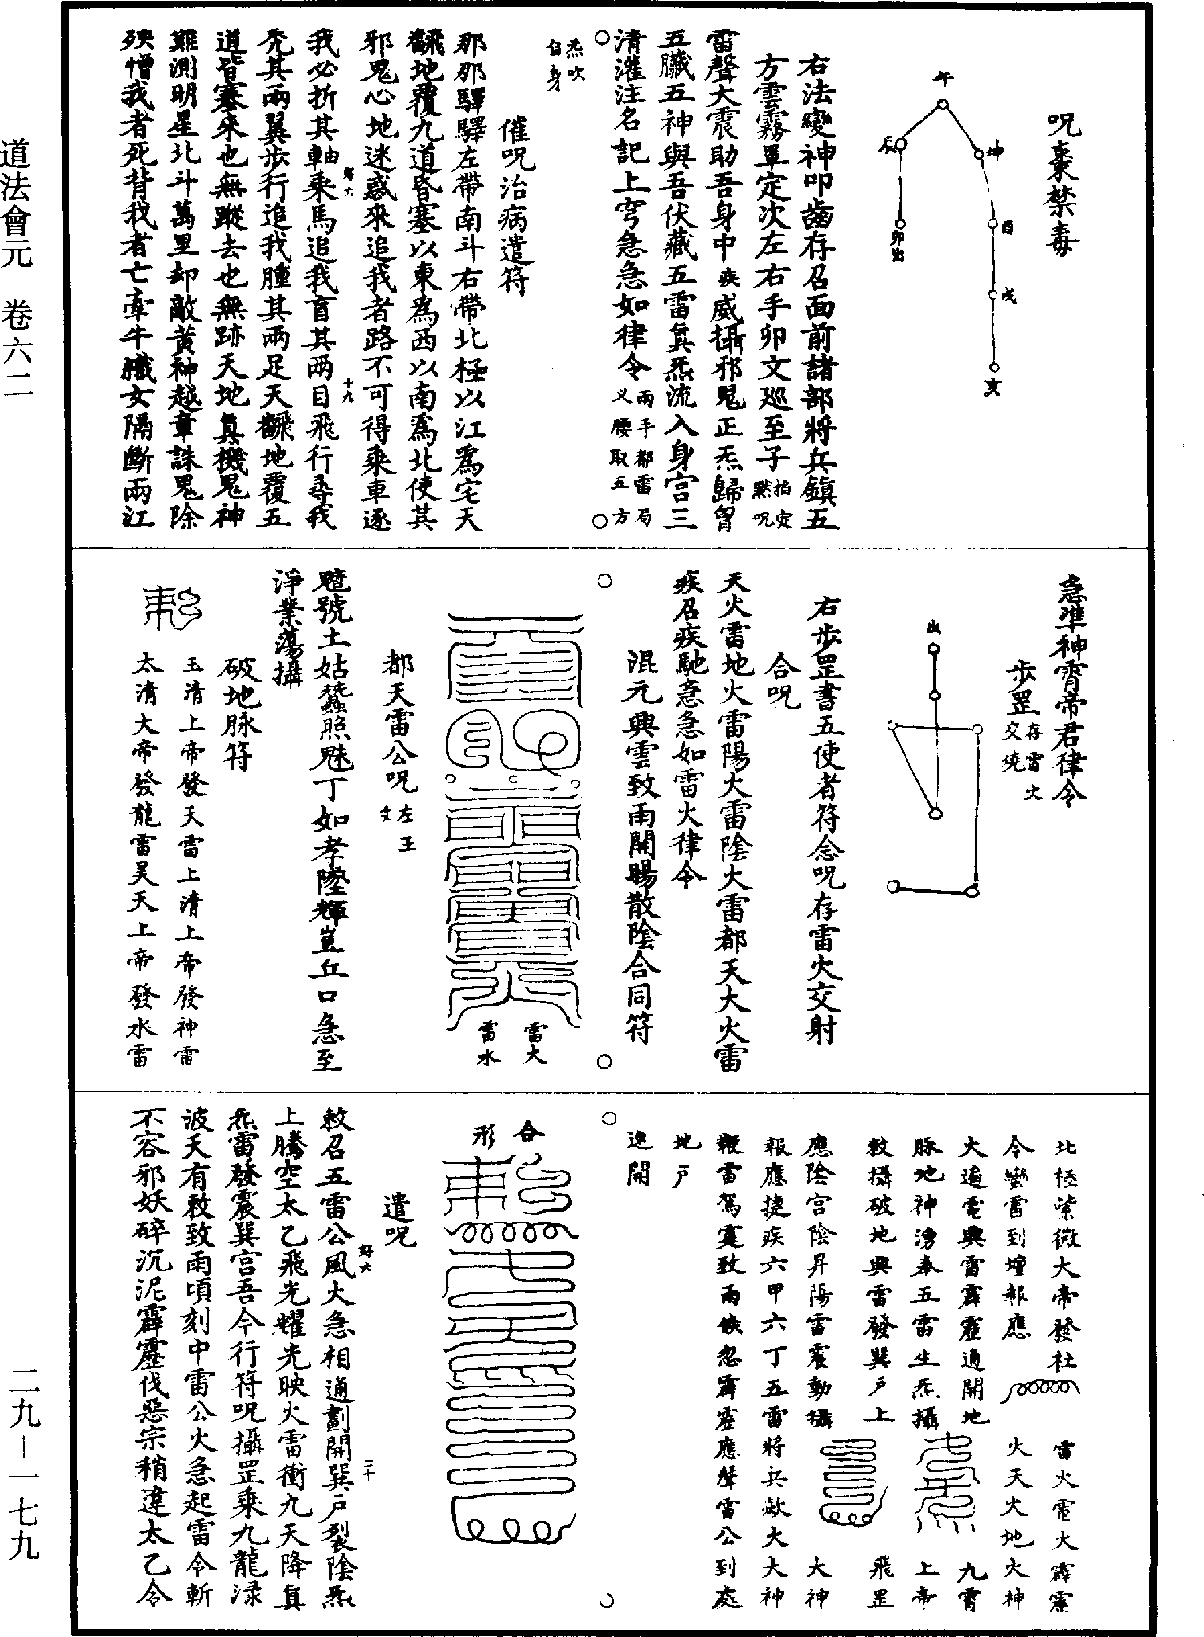 道法會元　卷六二
二九－一七九
呪棗禁毒
午
坤
酉
戌
亥
辰
卯出
右法變神叩齒存召面前諸部將兵鎮五
方雲霧罩定次左右手卯文巡至子掐定默呪
雷聲大震助吾身中疾威攝邪鬼正炁歸曾
五臟五神與吾伏藏五雷真炁流入身宮三
清灌注名記上穹急急如律令兩手都雷局
叉腰取五方
炁吹
自身
催呪治病遣符
那那驛驛左帶南斗右帶北極以江為宅天
翻地覆九道昏塞以東為西以南為北使其
邪鬼心地迷惑來追我者路不可得乘車逐
我必折其軸乘馬追我盲其兩目飛行尋我
禿其兩翼步行追我腫其兩足天翻地覆五
道皆塞來也無蹤去也無跡天地真機鬼神
難測明星北斗萬里却敵黃神越章誅鬼除
殃憎我者死背我者亡牽牛織女隔斷兩江
十九
急準神霄帝君律令
步罡存雷火
交燒
出
右步罡書五使者符念呪存雷火交射
合呪
天火雷地火雷陽火雷陰火雷都天大火雷
疾召疾馳急急如雷火律令
混元興雲致雨開暘散陰合同符
雷火
雷水
都天雷公呪左玉
文
號土姑蠶照魅丁如孝隆輝豈丘口急至
淨業蕩攝
破地脉符
玉清上帝發天雷上清上帝發神雷
太清大帝發龍雷昊天上帝發水雷
北極紫微大帝發社
雷火電火霹靂
令蠻雷到壇報應
火天火地火神
大遍電興雷霹靂通開地
九霄
脉地神湧奉五雷生炁攝
上帝
敕攝破地興雷發巽戶上
飛罡
應陰宮陰昇陽雷震動攝
大神
報應捷疾六甲六丁五雷將兵歘火大神
鞭雷駕霆致雨倏忽霹靂應聲雷公到處
地戶
速開
合
形
遣呪
敕召五雷公風火急相通劃開巽戶裂陰炁
上騰空太乙飛光耀光映火雷衝九天降真
炁雷發震巽宮吾今行符呪攝罡乘九龍淥
波天有敕致雨頃刻中雷公火急起雷令斬
不容邪妖碎沉泥霹靂伐惡宗稍違太乙令
二十